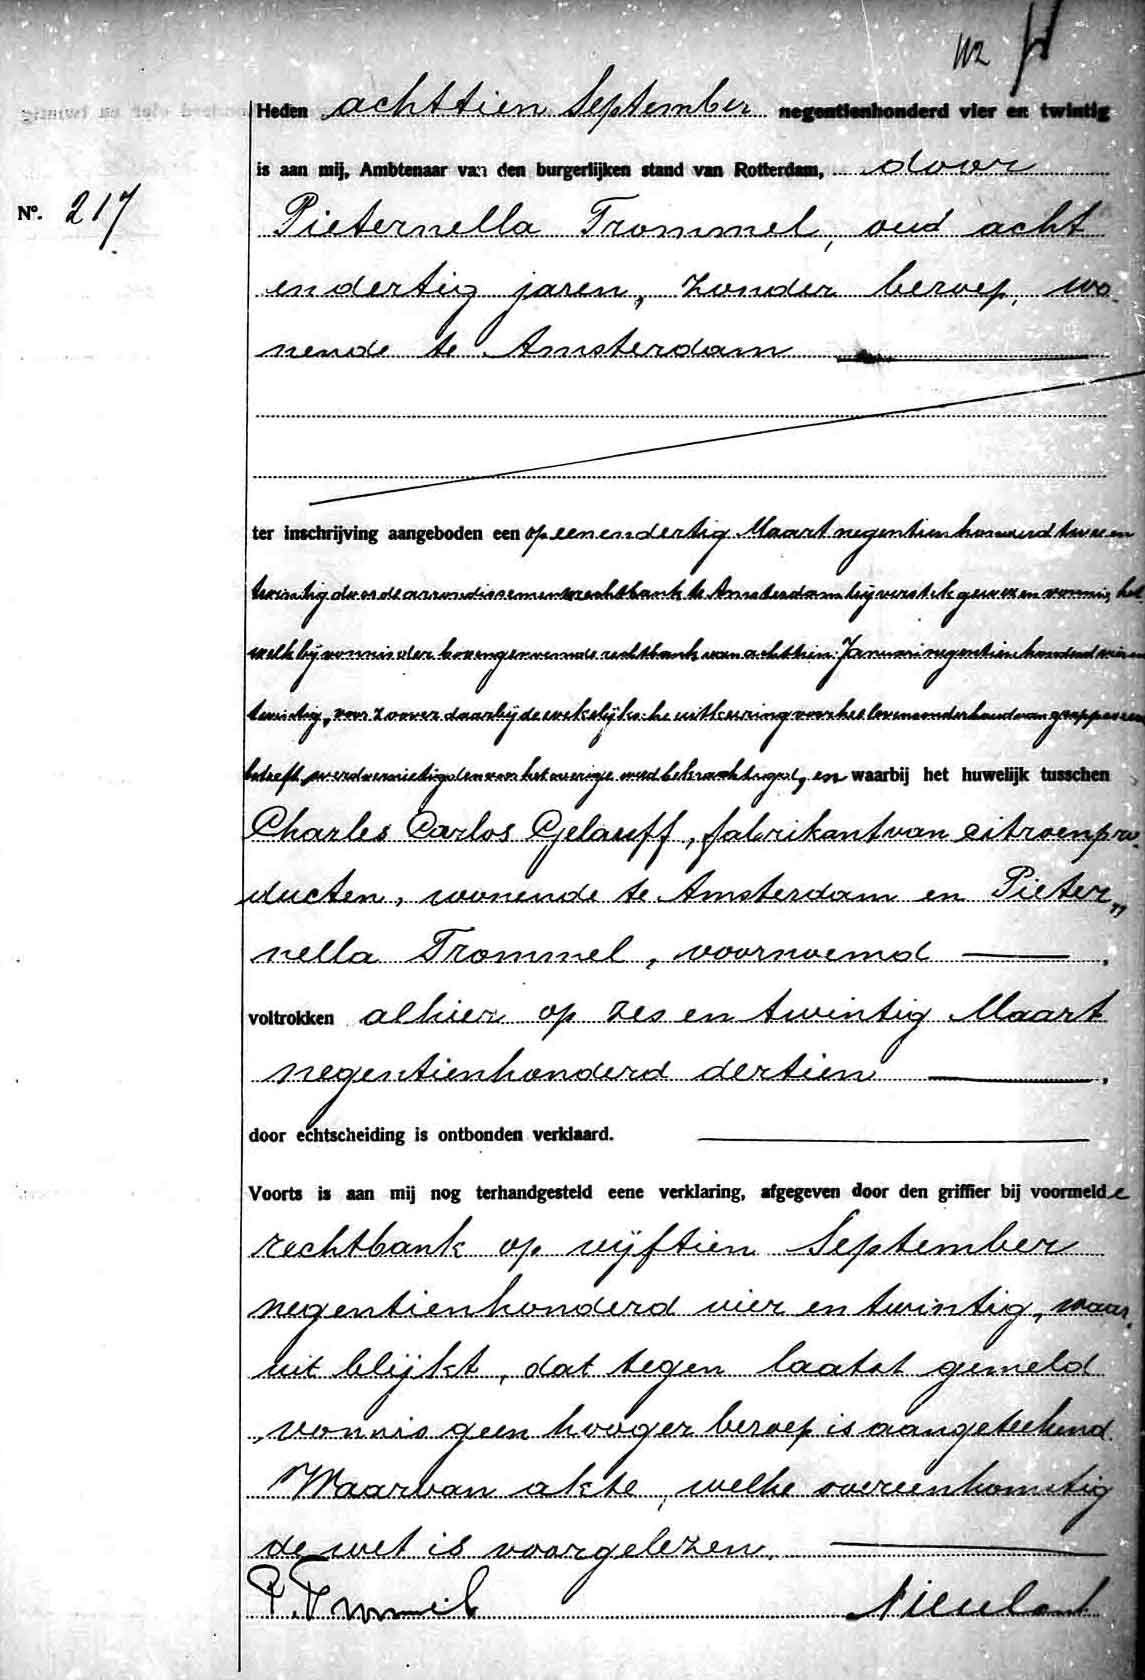 112
Heden achttien September negentienhonderd vier en twintig
is aan mij, Ambtenaar van den burgerlijken stand van Rotterdam, door
No. 217
Pieternella Trommel, oud acht
en dertig jaren, zonder beroep, wo-
nende te Amsterdam
ter inschrijving aangeboden een op een en dertig Maart negentienhonderd twee en
twintig door de arrondissementsrechtbank te Amsterdam bij verstek gewezen vonnis, het
welk bij vonnis der bovengenoemde rechtbank van achttien Januari negentienhonderd vier en
twintig, voor zoover daarbij de wekelijksche uitkeering voor het levensonderhoud van
betreft, werd vernietigd en voor het overige werd bekrachtigd, en waarbij het huwelijk tusschen
Charles Carlos Gelauff, fabrikant van citroenpro-
ducten, wonende te Amsterdam en Pieter„
nella Trommel, voornoemd
voltrokken alhier op zes en twintig Maart
negentienhonderd dertien
door echtscheiding is ontbonden verklaard.
Voorts is aan mij nog terhandgesteld eene verklaring, afgegeven door den griffier bij voormelde
rechtbank op vijftien September
negentienhonderd vier en twintig, waar-
uit blijkt, dat tegen laatst gemeld
vonnis geen hooger beroep is aangeteekend.
Waarvan akte, welke overeenkomstig
de wet is voorgelezen.
P. Trommel